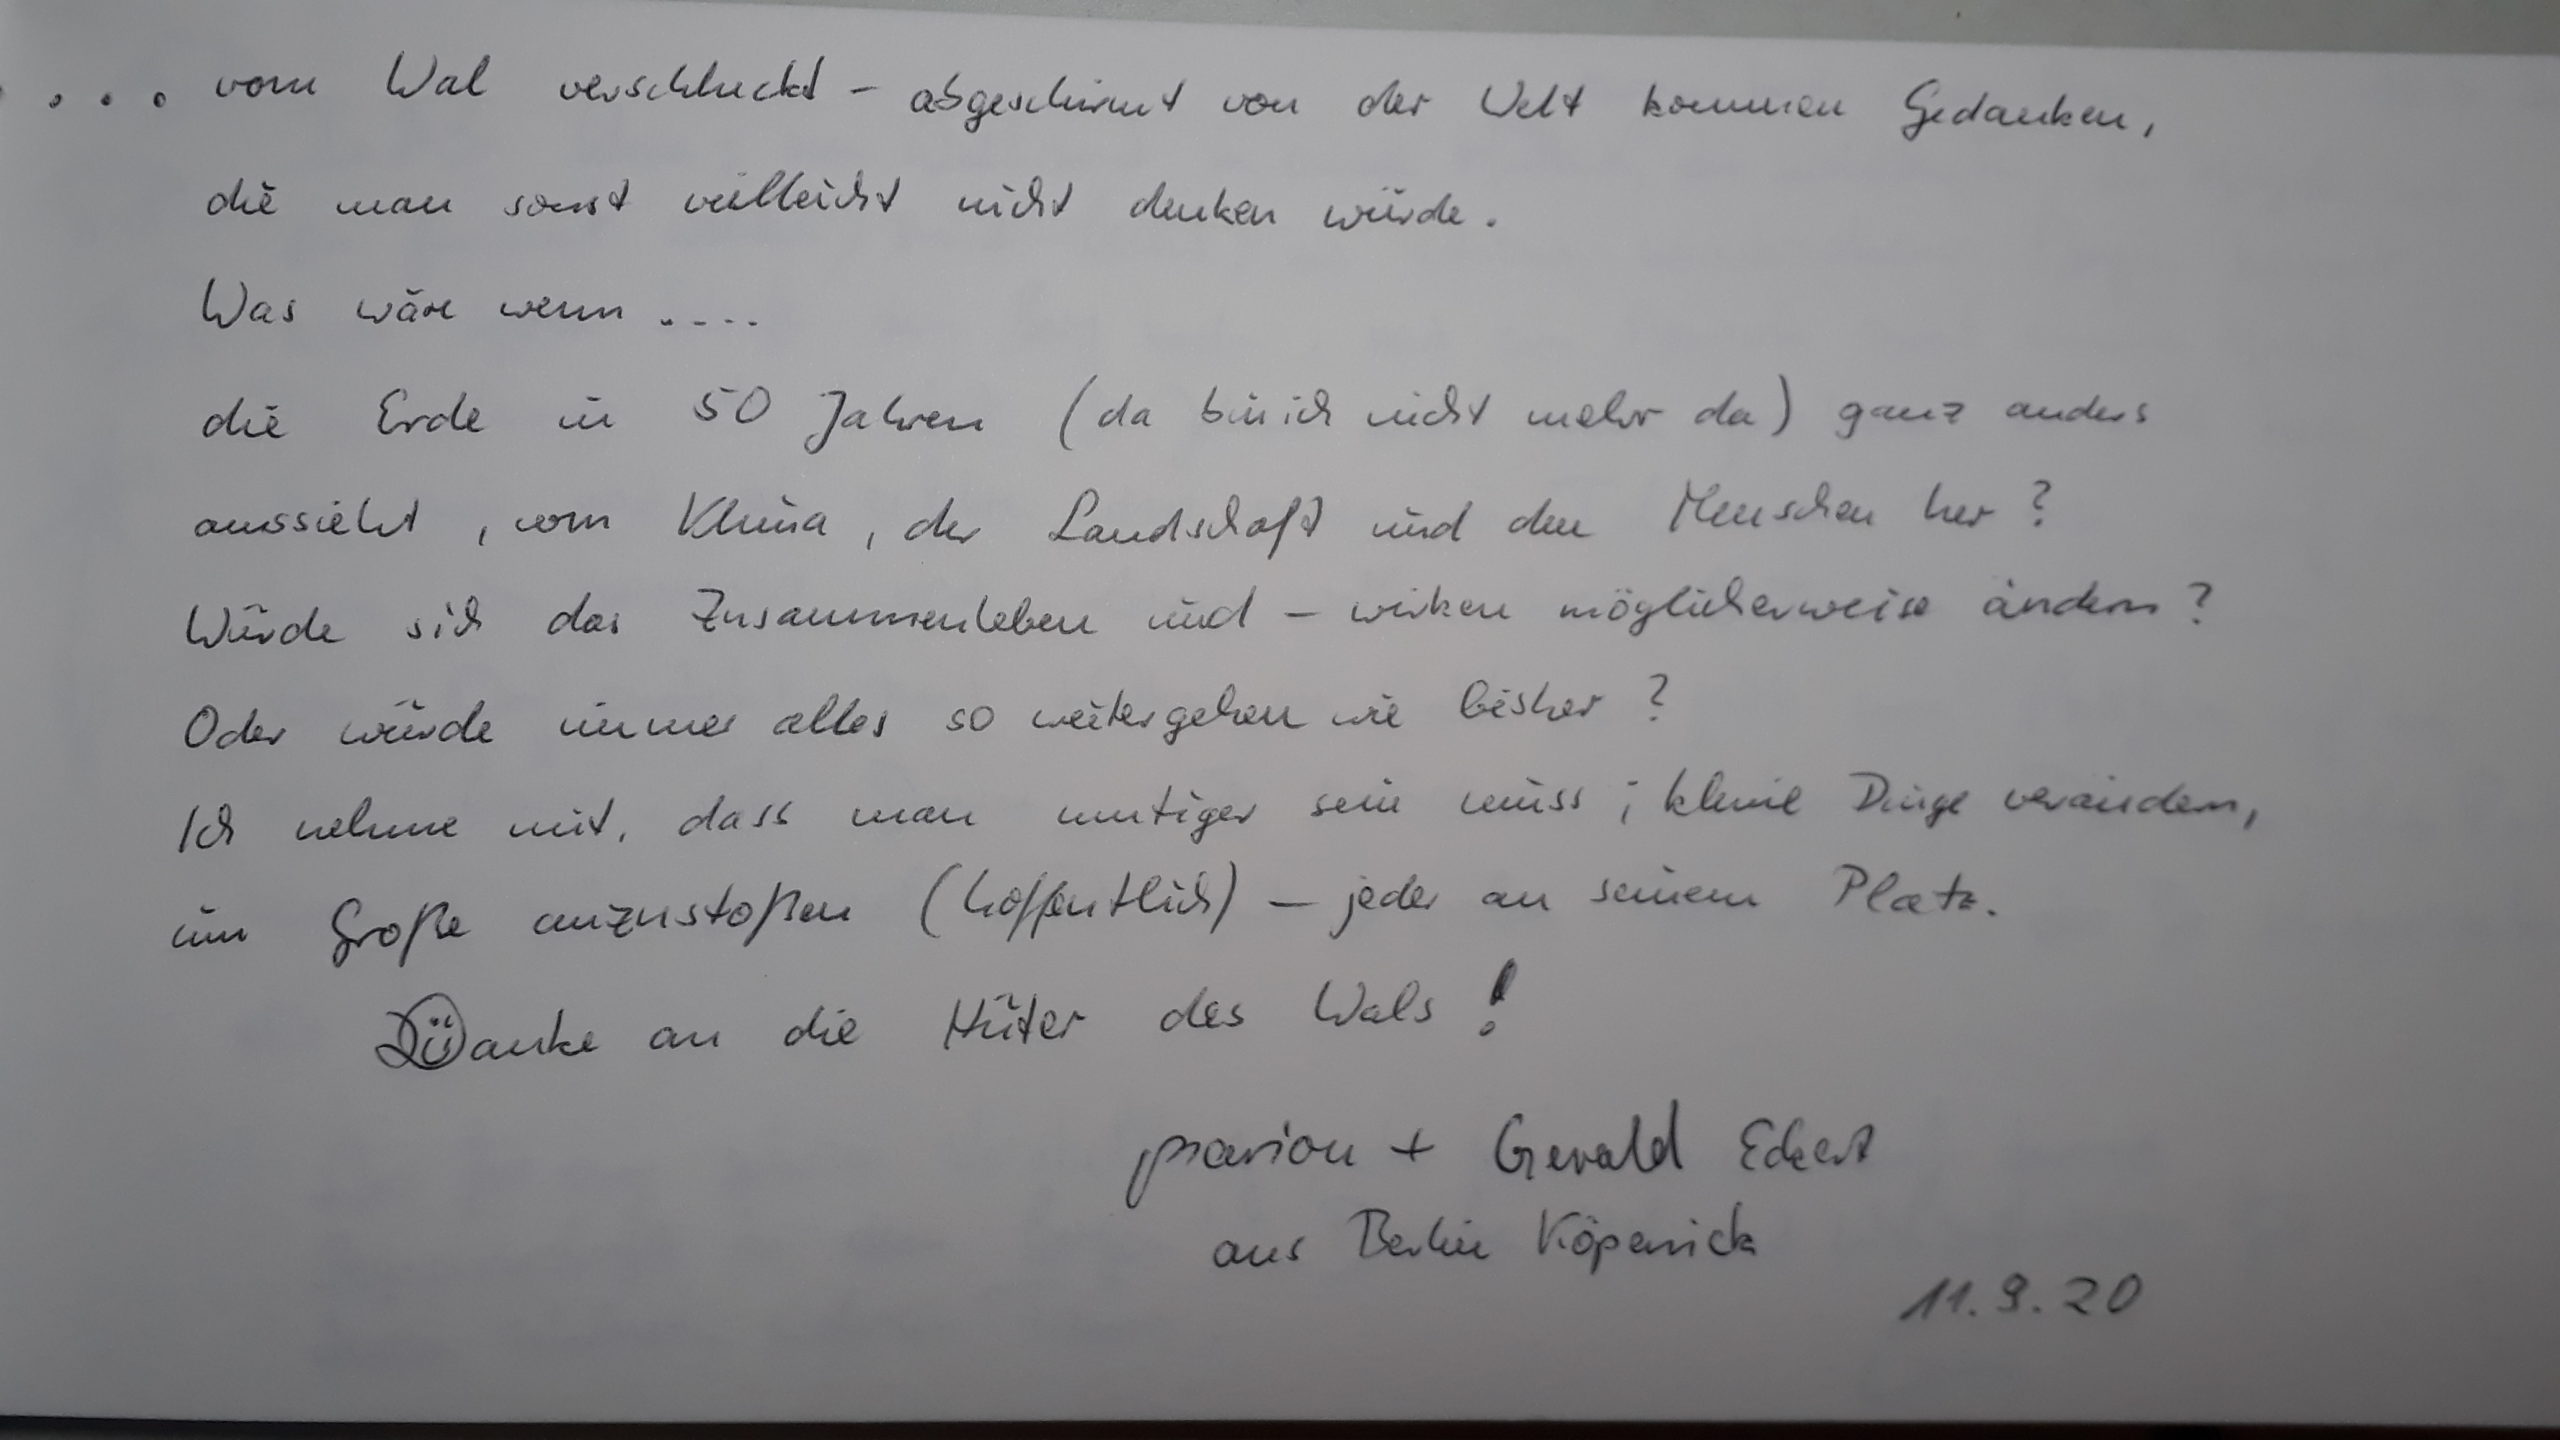 .... vom Wal verschluckt - abgeschirmt von der Welt kommen Gedanken,
die man sonst vielleicht nicht denken würde.
Was wäre wenn ....
die Erde in 50 Jahren (da bin ich nicht mehr da) ganz anders
aussieht, vom Klima, der Landschaft und den Menschen her?
Würde sich das Zusammenleben und - wirken möglicherweise ändern?
Oder würde immer alles so weitergehen wie bisher?
Ich nehme mit, dass man mutiger sein muss; kleine Dinge verändern,
um Große anzustoßen (hoffentlich) - jeder an seinem Platz.
Danke an die Hüter des Wals!
Marion + Gerald Eckert
aus Berlin Köpenick
11.9.20